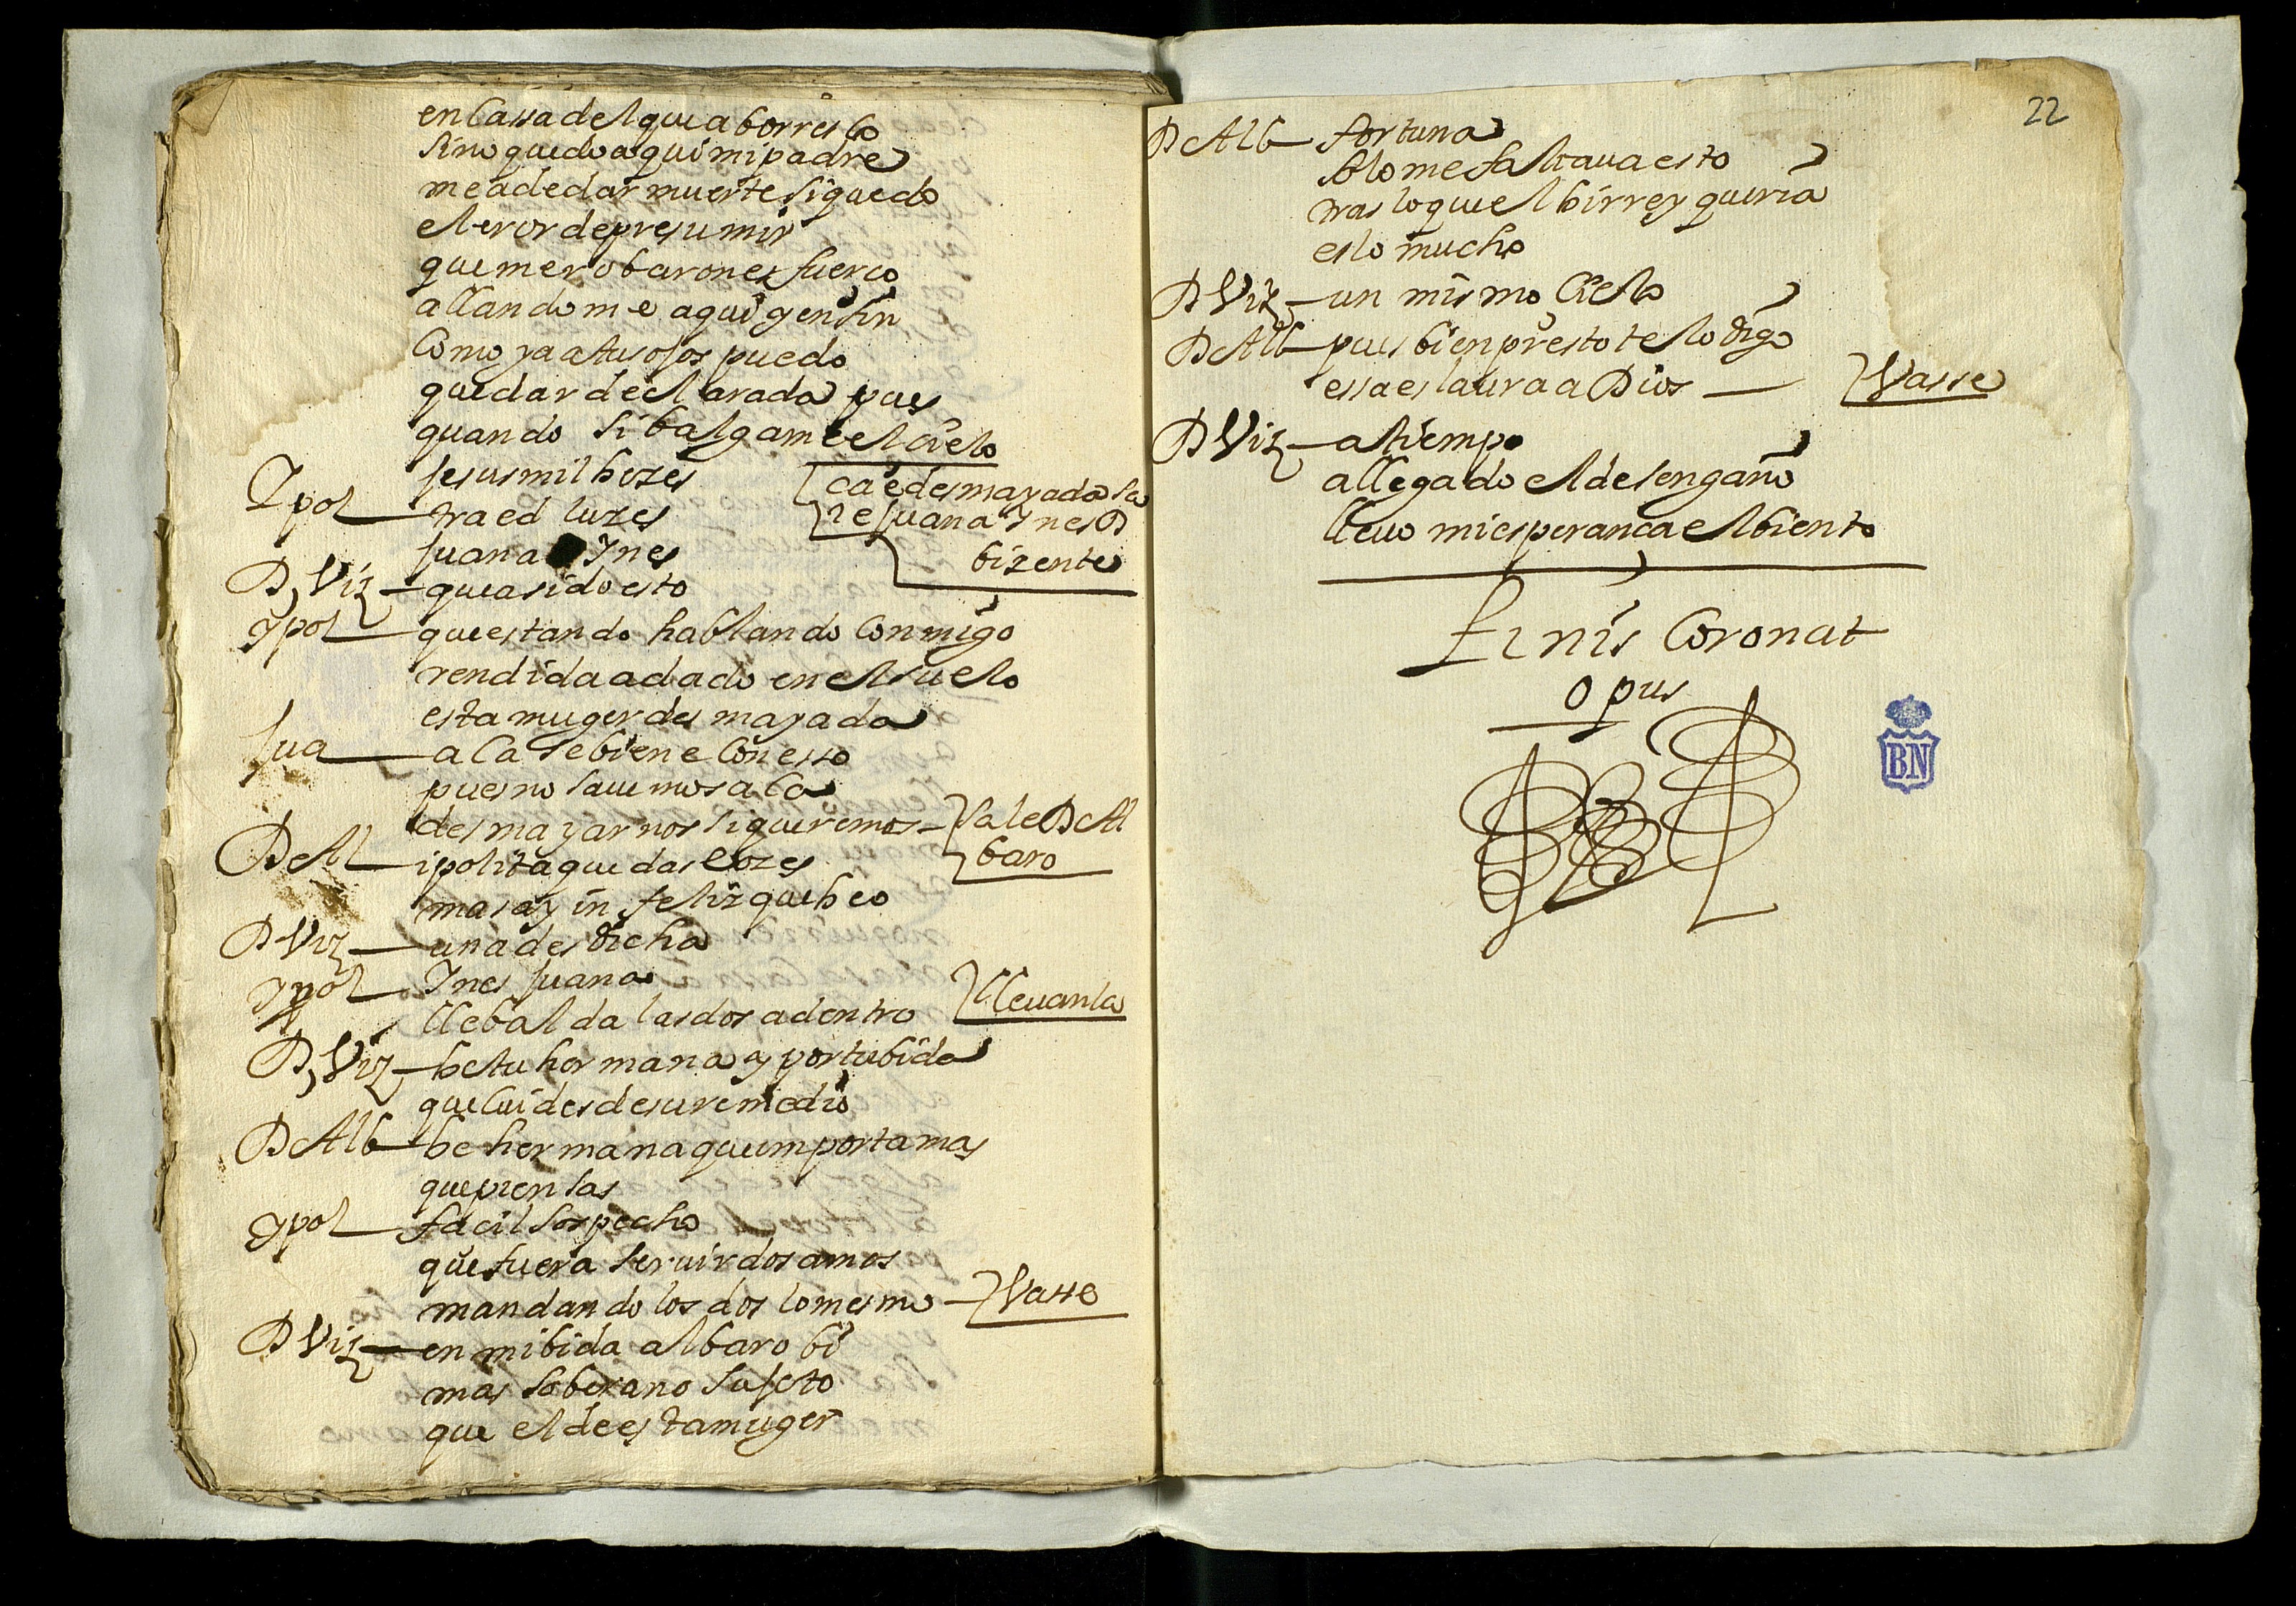 en Cassa del que aborresco
Sino quedo aqui mi padre
me a de dar muerte si quedo
el eror de presumir
que me robaron es fuerço
allandome aqui y en fin
Como ya a tus ojos puedo
quedar declarada pues
quando si balgame el cielo
Jesus mil bezes
cae desmayada sa
Ypol traed luzes
le Juana Ynes D
Juana Ynes
bizente
D, Viz que a sido esto
Ypol que estando hablando Conmigo
rendida a dado en el suelo
esta muger desmayada
Jua aCa se biene Con esso
pues no sauemos aCa
desmayarnos si queremos
Sale D Al
baro
D Al ipolita que das bozes
mas ay infeliz que beo
D Viz una desdicha
Ypol Ynes Juana
llebalda las dos adentro
lleuanla
D, Viz be tu hermana y por tu bida
que Cuides de su remedio
D Alb be hermana que importa mas
que piensas
Ypol facil sospecho
que fuera seruir dos amos
mandando los dos lo mesmo
Vasse
D Viz en mi bida albaro bi
mas soberano sujeto
que el de esta muger
22
D Alb fortuna
solo me faltaua esto
tras lo que el birrey queria
es lo mucho
D Viz un mismo Cielo
D Alb pues bien presto te lo digo
essa es laura a Dios
Vasse
D Viz a tiempo
a llegado el desengaño
lleuo mi esperanca el biento
finis Coronat
opus
BN